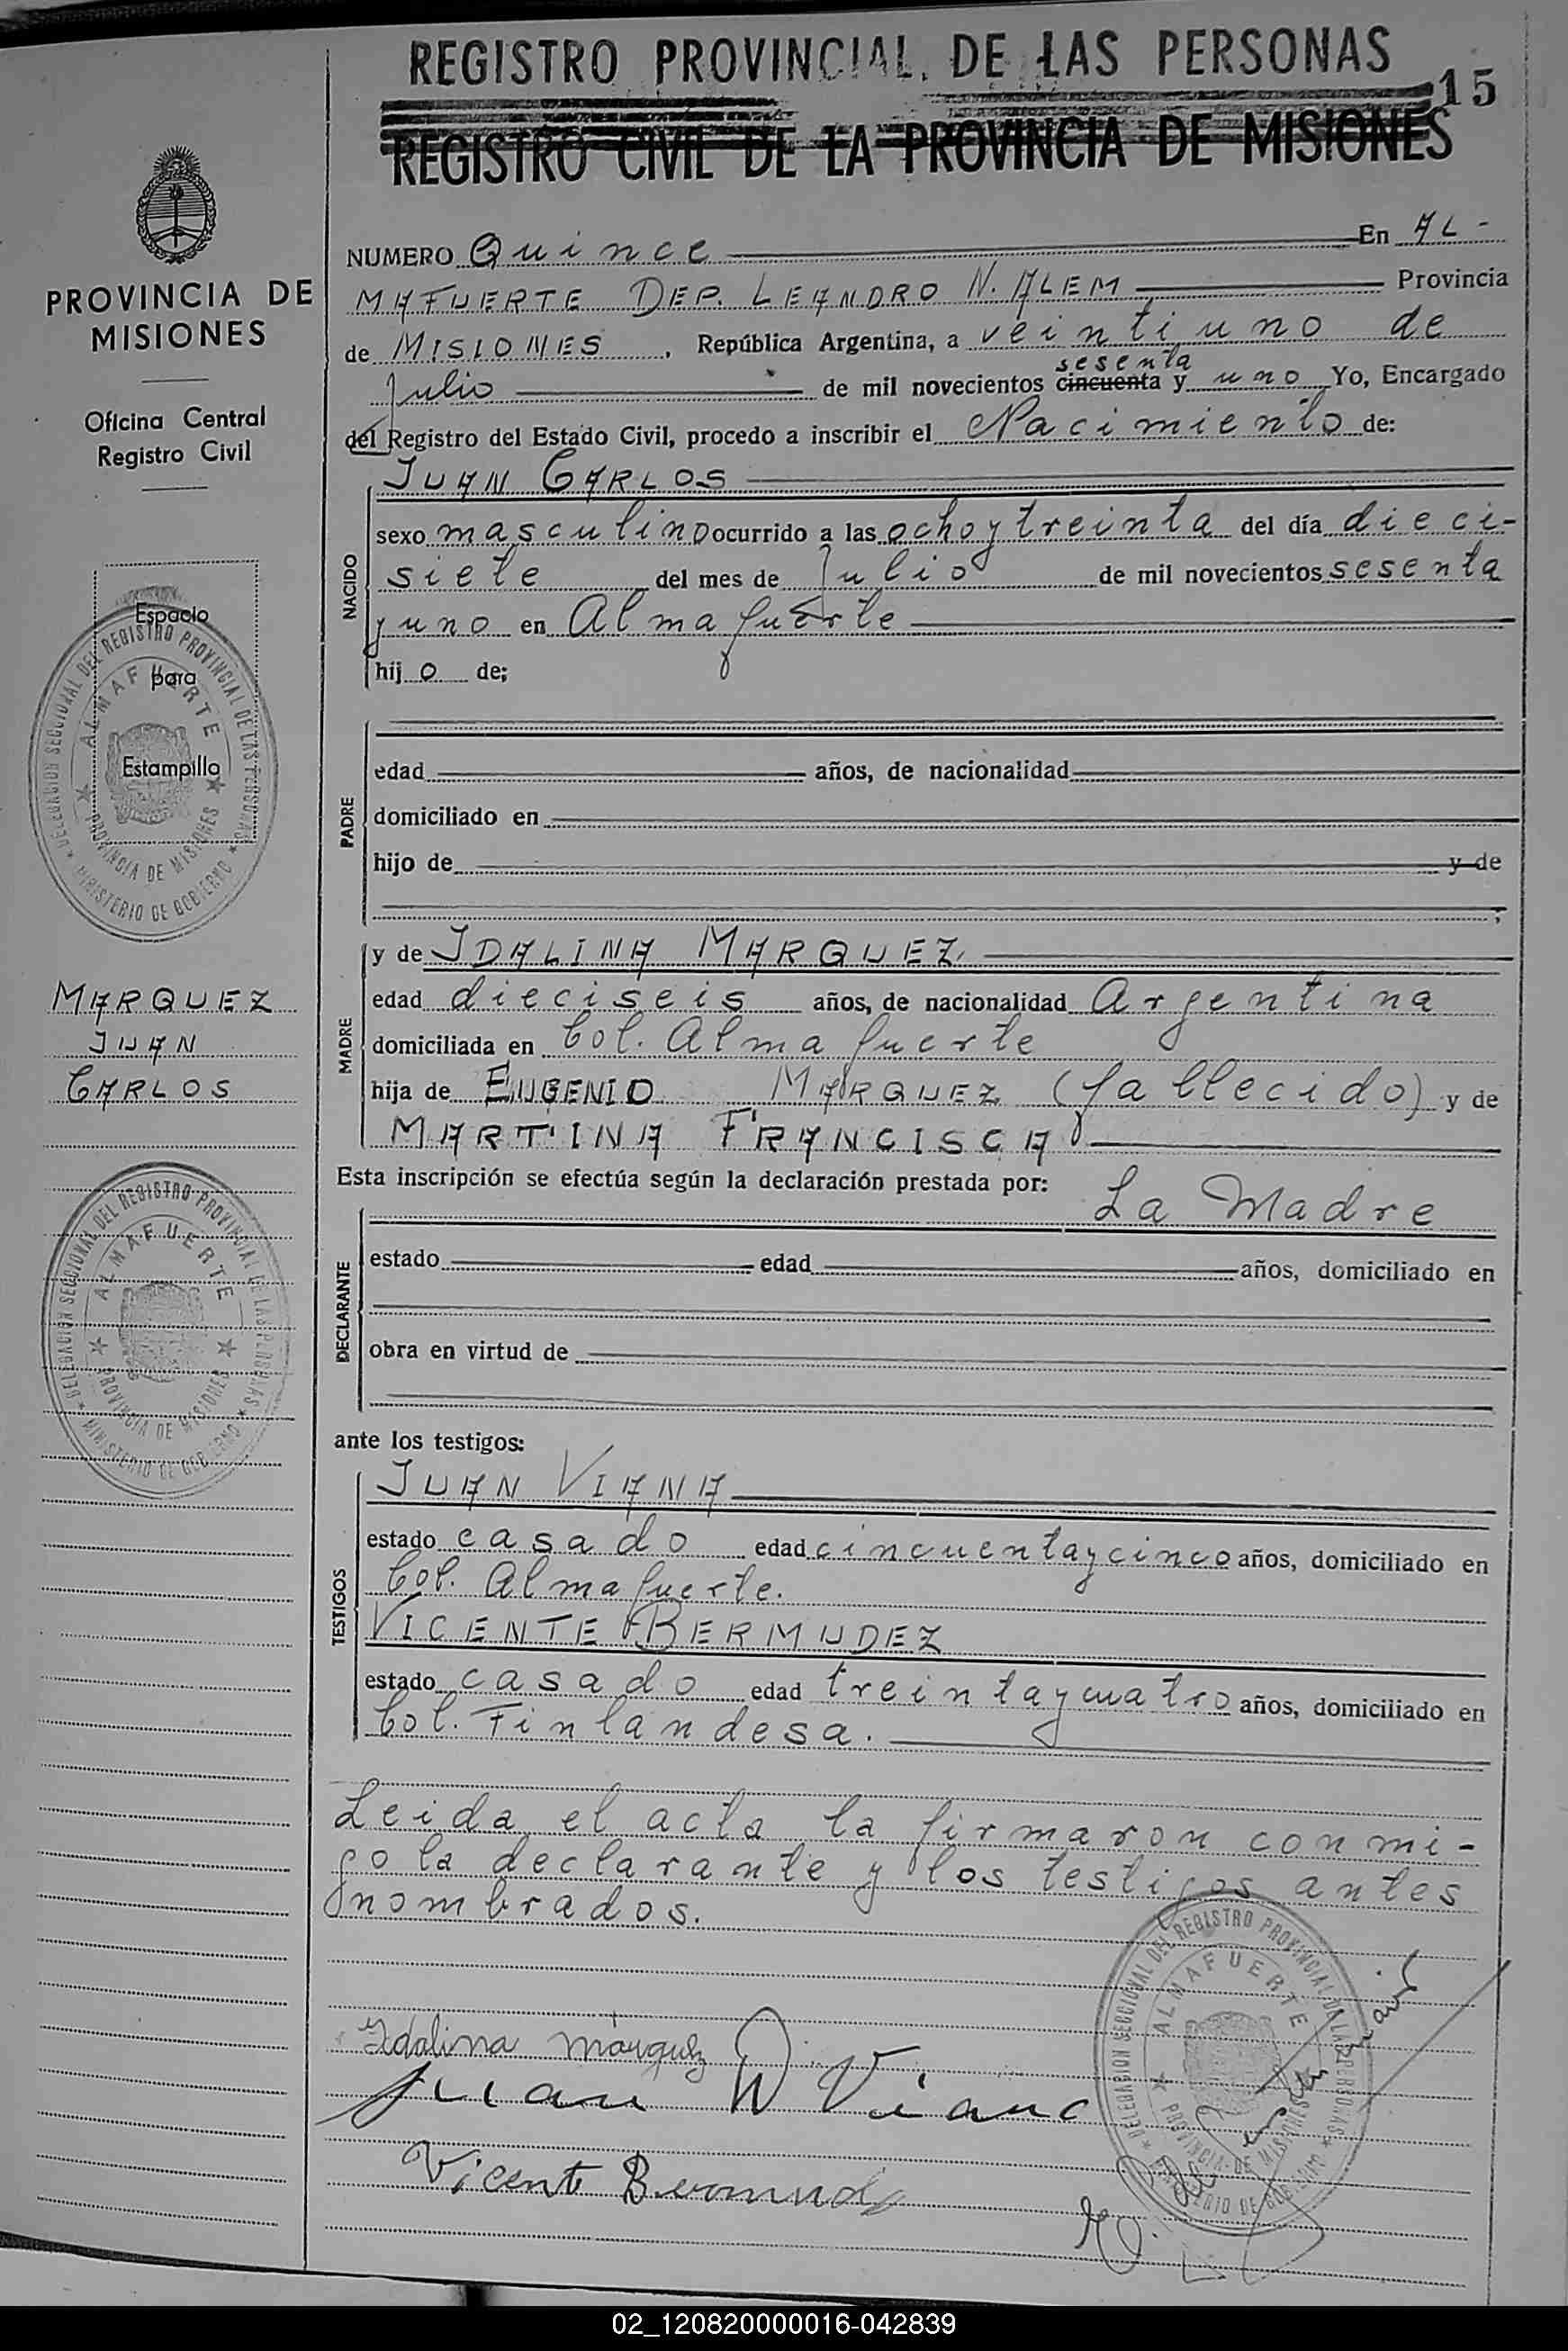 REGISTRO PROVINCIAL DE LAS PERSONAS
15
REGISTRO CIVIL DE LA PROVINCIA DE MISIONES
PROVINCIA DE
MISIONES
Oficina Central
Registro Civil
Espacio
para
Estampilla
DELEGACION SECCIONAL DEL REGISTRO PROVINCIAL DE LAS PERSONAS
ALMAFUERTE
PROVINCIA DE MISIONES
MINISTERIO DE GOBIERNO
MARQUEZ
JUAN
CARLOS
DELEGACION SECCIONAL DEL REGISTRO PROVINCIAL DE LAS PERSONAS
ALMAFUERTE
PROVINCIA DE MISIONES
MINISTERIO DE GOBIERNO
NUMERO Quince En AL-
MAFUERTE DEP. LEANDRO N. ALEM Provincia
de MISIONES, República Argentina, a veintiuno de
sesenta
Julio de mil novecientos cincuenta y uno Yo, Encargado
del Registro del Estado Civil, procedo a inscribir el Nacimiento de:
NACIDO
JUAN CARLOS
sexo masculino ocurrido a las ocho y treinta del día dieci-
siete del mes de Julio de mil novecientos sesenta
y uno en Almafuerte
hijo de;
PADRE
edad años, de nacionalidad
domiciliado en
hijo de y de
;
MADRE
y de IDALINA MARQUEZ
edad dieciseis años, de nacionalidad Argentina
domiciliada en Col. Almafuerte
hija de EUGENIO MARQUEZ (fallecido) y de
MARTINA FRANCISCA
Esta inscripción se efectúa según la declaración prestada por: La Madre
DECLARANTE
estado edad años, domiciliado en
obra en virtud de
ante los testigos:
TESTIGOS
JUAN VIANA
estado casado edad cincuenta y cinco años, domiciliado en
Col. Almafuerte.
VICENTE BERMUDEZ
estado casado edad treinta y cuatro años, domiciliado en
Col. Finlandesa.
Leida el acta la firmaron conmi-
go la declarante y los testigos antes
nombrados.
Idalina Márquez
Juan Viana
Vicente Bermudez
DELEGACION SECCIONAL DEL REGISTRO PROVINCIAL DE LAS PERSONAS
ALMAFUERTE
PROVINCIA DE MISIONES
MINISTERIO DE GOBIERNO
02_120820000016-042839